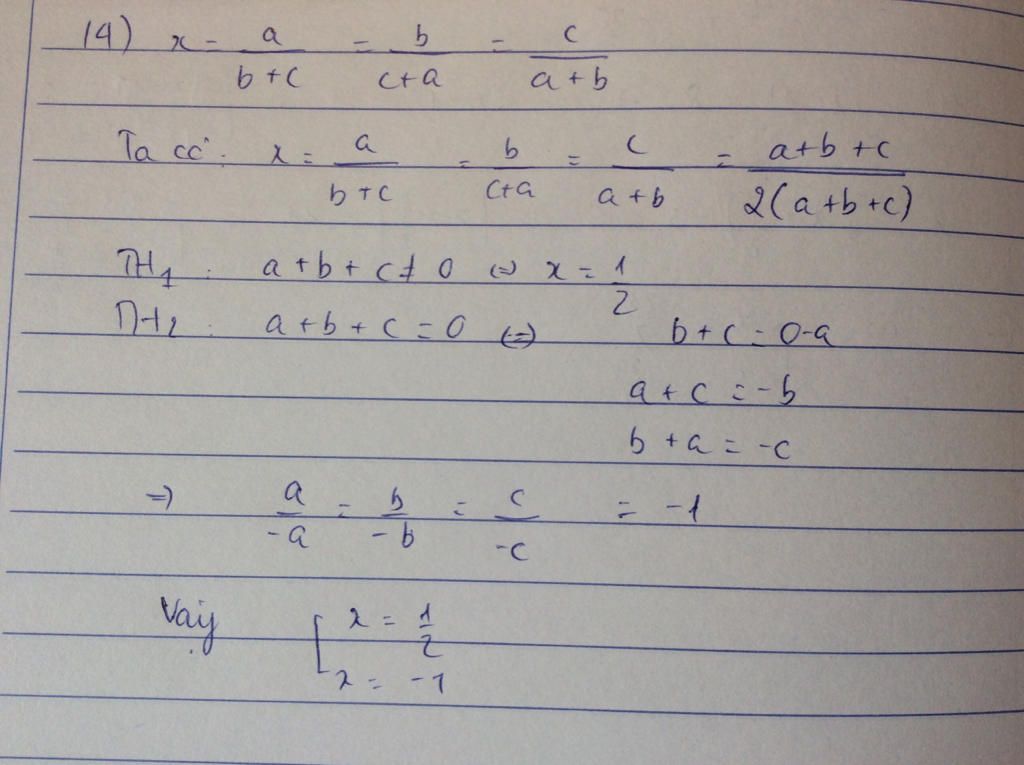 14) x = a/(b+c) = b/(c+a) = c/(a+b)
Ta có: x = a/(b+c) = b/(c+a) = c/(a+b) = (a+b+c)/(2(a+b+c))
TH1: a+b+c ≠ 0 (=) x = 1/2
TH2: a+b+c = 0 (=) b+c = 0-a
a+c = -b
b+a = -c
=) a/-a = b/-b = c/-c = -1
Vậy [ x = 1/2
x = -1